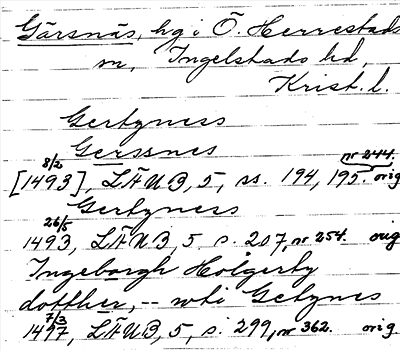 Gärsnäs, hg i Ö. Herrestads
sn, Ingelstads hd,
Krist. l.
Gertyness
Gerssnes
nr 244.
8/2
[1493], LÄUB, 5, ss. 194, 195. orig
Gertyness
26/5
1493, LÄUB, 5 s. 207, nr 254. orig
Ingeborgh Holgerty
dotther, -- wti Getynes
7/3
1497, LÄUB, 5, s. 299, nr 362. orig